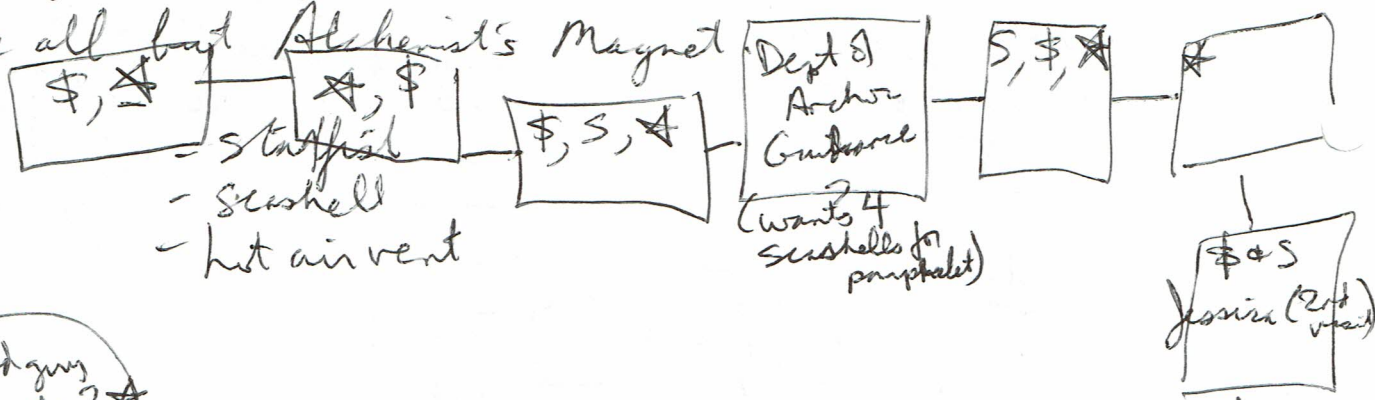 all but Alchemist's Magnet
$, ☆
☆, $
- starfish
- seashell
- hot air vent
$, S, ☆
Dept of
Anchor
Guidance
?
(wants 4
seashells for
pamphalet)
S, $, ☆
☆
$ & S
Jessica (2nd
visit)
guy
? ☆